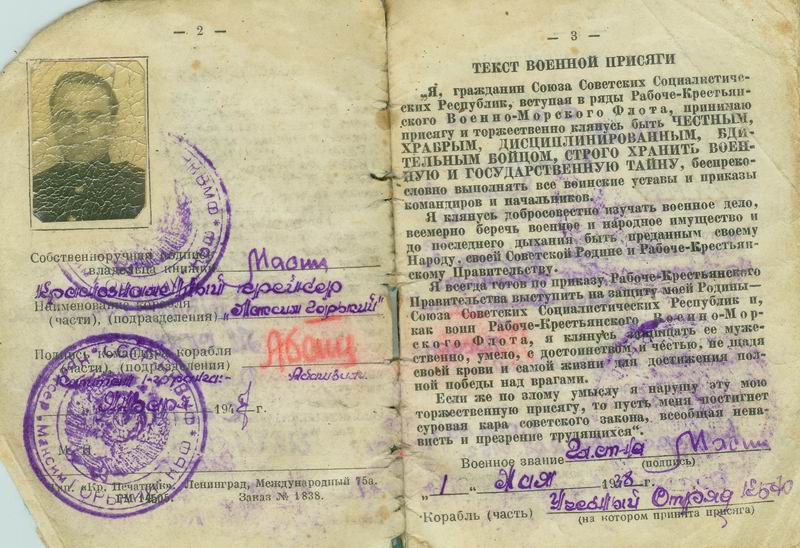 — 2 —
Собственноручная подпись
владельца книжки
Краснознаменный крейсер
Наименование корабля
(части), (подразделения) „Максим Горький“
Подпись командира корабля
(части), (подразделения)
Капитан 1-го ранга:-
194 г.
М. П.
Тип. „Кр. Печатник“. Ленинград, Международный 75а.
Заказ № 1838.
— 3 —
ТЕКСТ ВОЕННОЙ ПРИСЯГИ
„Я, гражданин Союза Советских Социалистиче-
ских Республик, вступая в ряды Рабоче-Крестьян-
ского Военно-Морского Флота, принимаю
присягу и торжественно клянусь быть ЧЕСТНЫМ,
ХРАБРЫМ, ДИСЦИПЛИНИРОВАННЫМ, БДИ-
ТЕЛЬНЫМ БОЙЦОМ, СТРОГО ХРАНИТЬ ВОЕН-
НУЮ И ГОСУДАРСТВЕННУЮ ТАЙНУ, беспреко-
словно выполнять все воинские уставы и приказы
командиров и начальников.
Я клянусь добросовестно изучать военное дело,
всемерно беречь военное и народное имущество и
до последнего дыхания быть преданным своему
Народу, своей Советской Родине и Рабоче-Крестьян-
скому Правительству.
Я всегда готов по приказу Рабоче-Крестьянского
Правительства выступить на защиту моей Родины—
Союза Советских Социалистических Республик и,
как воин Рабоче-Крестьянского Военно-Мор-
ского Флота, я клянусь защищать ее муже-
ственно, умело, с достоинством и честью, не щадя
своей крови и самой жизни для достижения пол-
ной победы над врагами.
Если же по злому умыслу я нарушу эту мою
торжественную присягу, то пусть меня постигнет
суровая кара советского закона, всеобщая нена-
висть и презрение трудящихся“.
Военное звание
(подпись)
„1“ Мая 193 г.
Корабль (часть) Учебный Отряд КБФ
(на котором принята присяга)